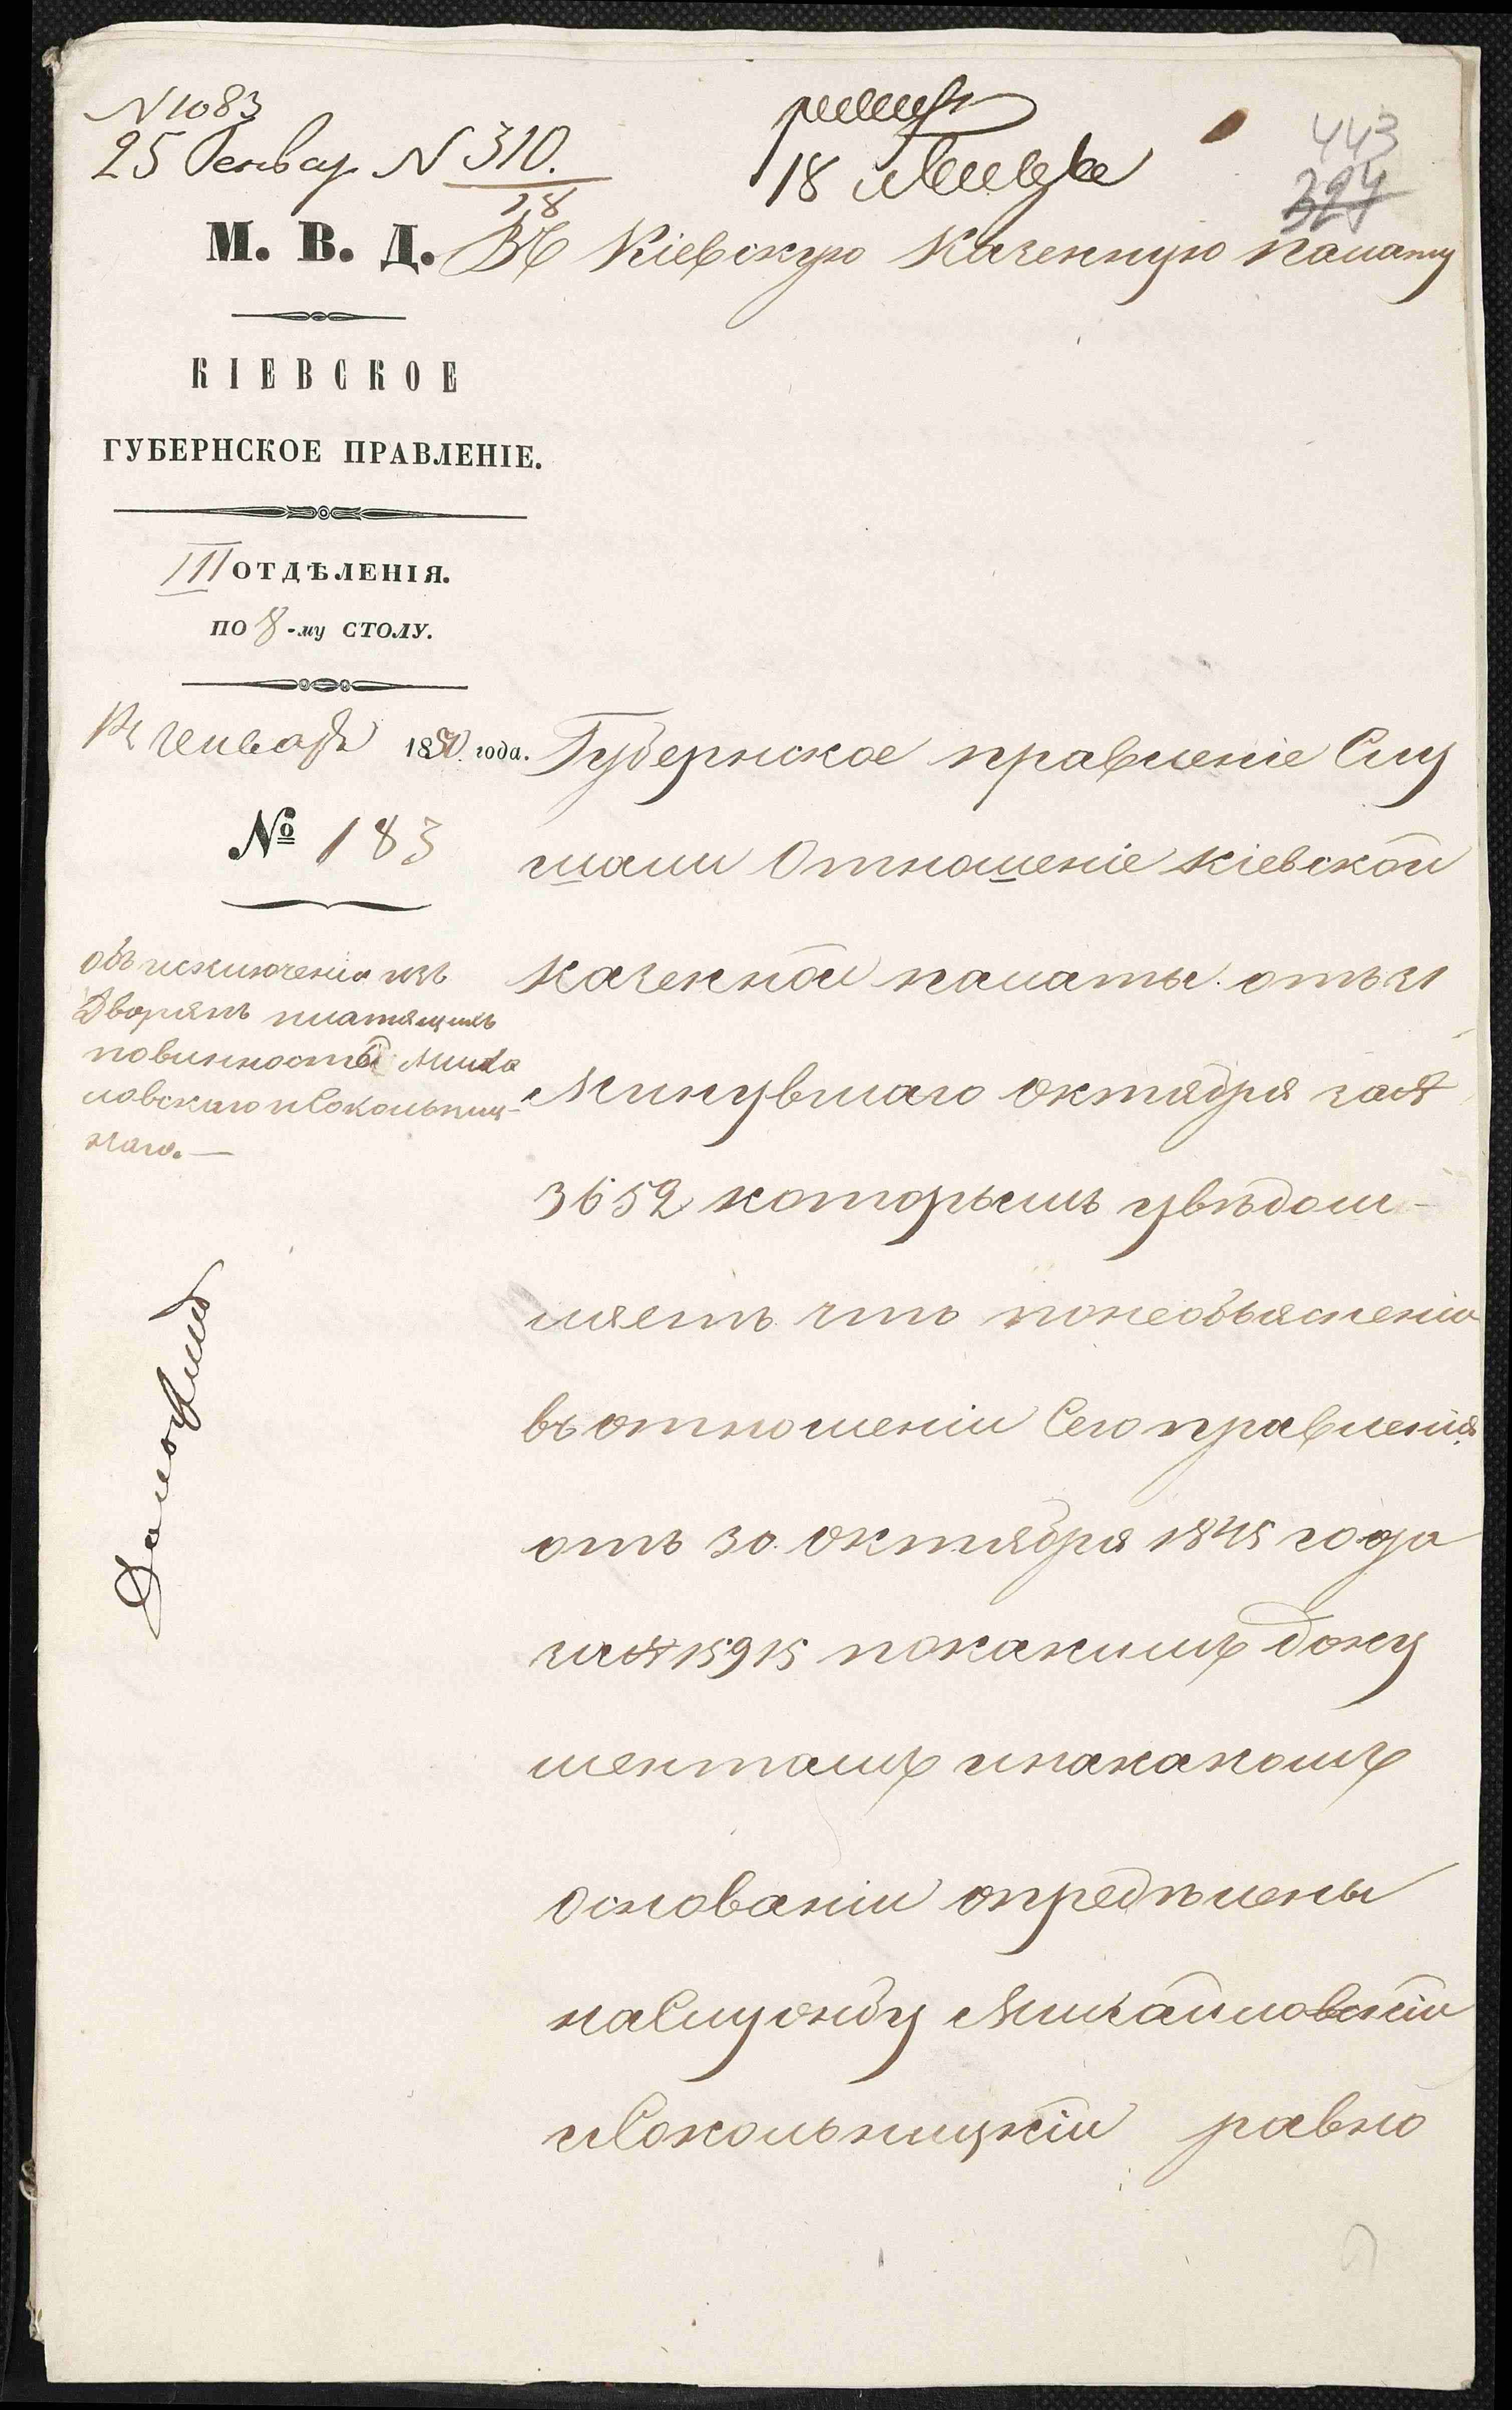 N 1083
25 Генвар N 310.
18
18 Января
443
324
М. В. Д.
Въ Кіевскую Казенную палату
КІЕВСКОЕ
ГУБЕРНСКОЕ ПРАВЛЕНІЕ.
III ОТДѢЛЕНІЯ.
ПО 8-му СТОЛУ.
генваря 1850 года.
№ 183
объ исключеніи изъ
Дворянъ платящихъ
повинности Михай
ловскаго и Сокольниц-
каго.—
Губернское правленіе Слу
шали Отношеніе Кіевской
Казенной палаты отъ 21
Минувшаго октября за №
3652 которымъ увѣдом-
ляетъ что по необъясненію
въ отношеніи Сего правленія
отъ 30 октября 1845 года
за № 15915 по какимъ доку
ментамъ и на какомъ
основаніи опредѣлены
на Службу Михайловскій
и Сокольницкій равно